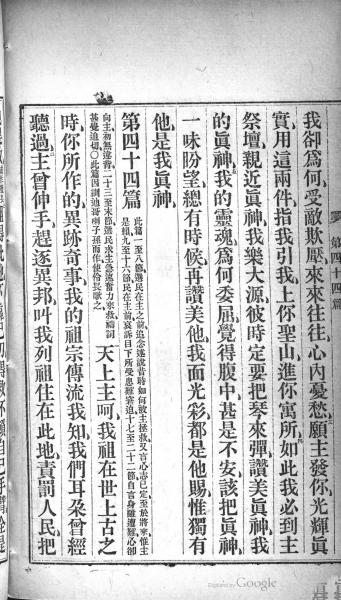 我卻爲何受敵欺壓來來往往心內憂愁願主發你光輝眞
實用這兩件指我引我上你聖山進你寓所如此我必到主
祭壇親近眞神我樂大源彼時定要把琴來彈讚美眞神我
的眞神我的靈魂爲何委屈覺得腹中甚是不安該把眞神
一味盼望總有時候再讚美他我面光彩都是他賜惟獨有
他是我眞神
第四十四篇
此篇一至八節選民在主之前追念遂說昔時如何被主拯救又言心志已定至於將來惟主
是賴九至十六節選民在主前哀訴目下所受患難窘迫十七至二十二節自言身雖遭難心卻
向主初無違背二十三至末節選民求主急速奮力來救禱詞
甚覺迫切〇此篇因訓迪哥喇子孫而作使伶長歌之
天上主呵我祖在世上古之
時你所作的異跡奇事我的祖宗傳流我知我們耳朶曾經
聽過主曾伸手趕逐異邦叫我列祖住在此地責罰人民把
第四十四篇
Digitized by Google